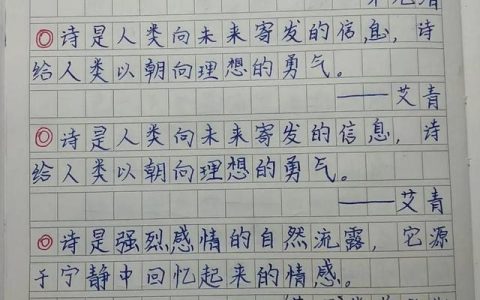 ◎诗是人类向未来寄发的信息,诗
给人类以朝向理想的勇气。
——艾青
◎诗是人类向未来寄发的信息,诗
给人类以朝向理想的勇气。
——艾青
◎诗是强烈感情的自然流露,它源
于宁静中回忆起来的情感。